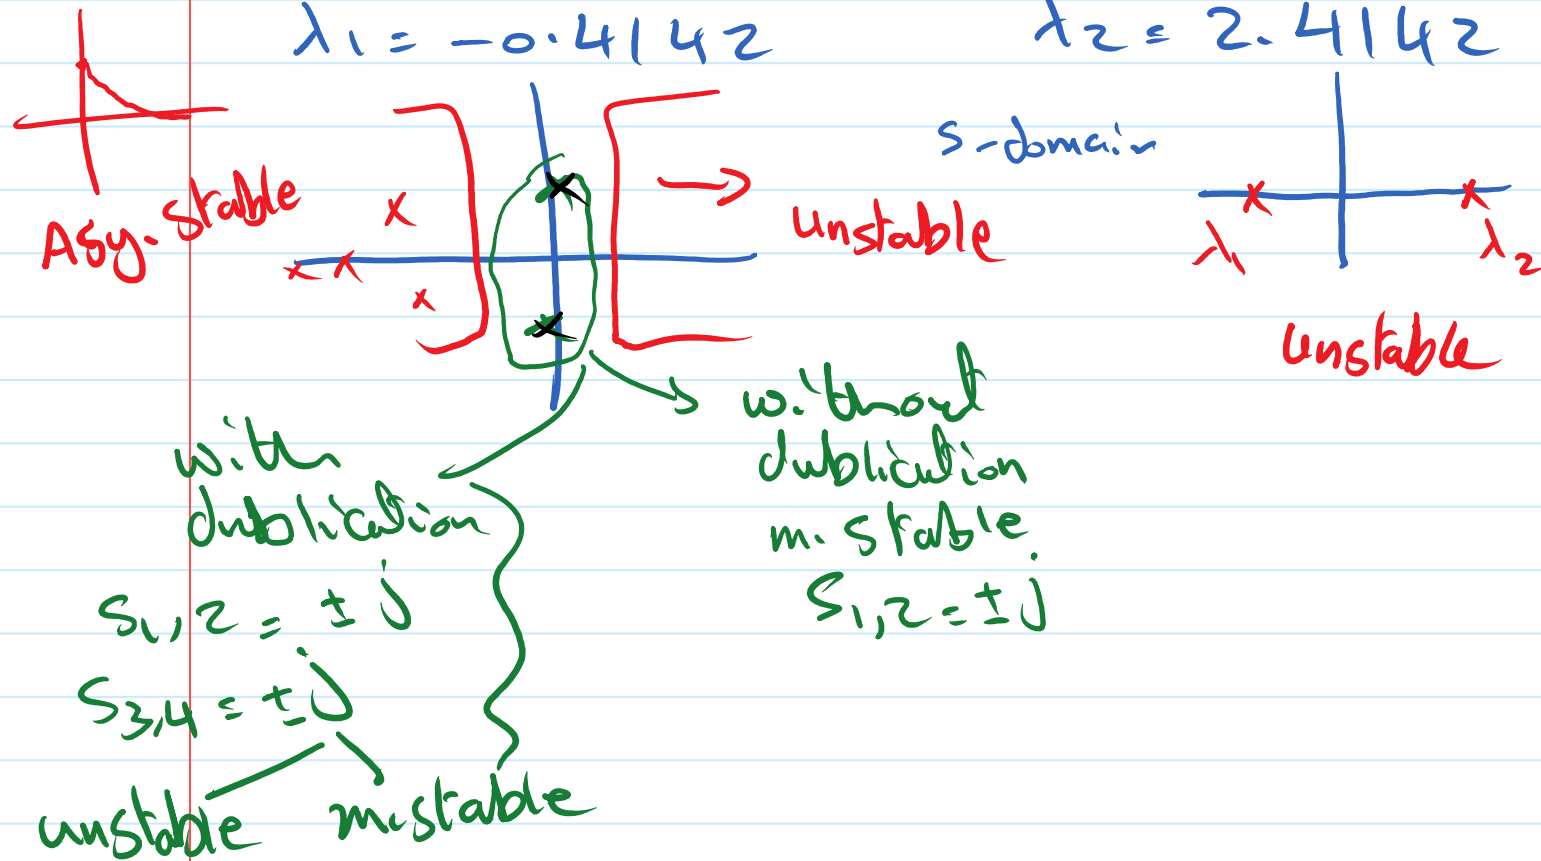 λ1 = -0.4142
λ2 = 2.4142
s-domain
Asy. stable
unstable
λ1
λ2
unstable
with
dublication
S1,2 = ± j
S3,4 = ± j
unstable
m.stable
without
dublication
m. stable
S1,2 = ± j